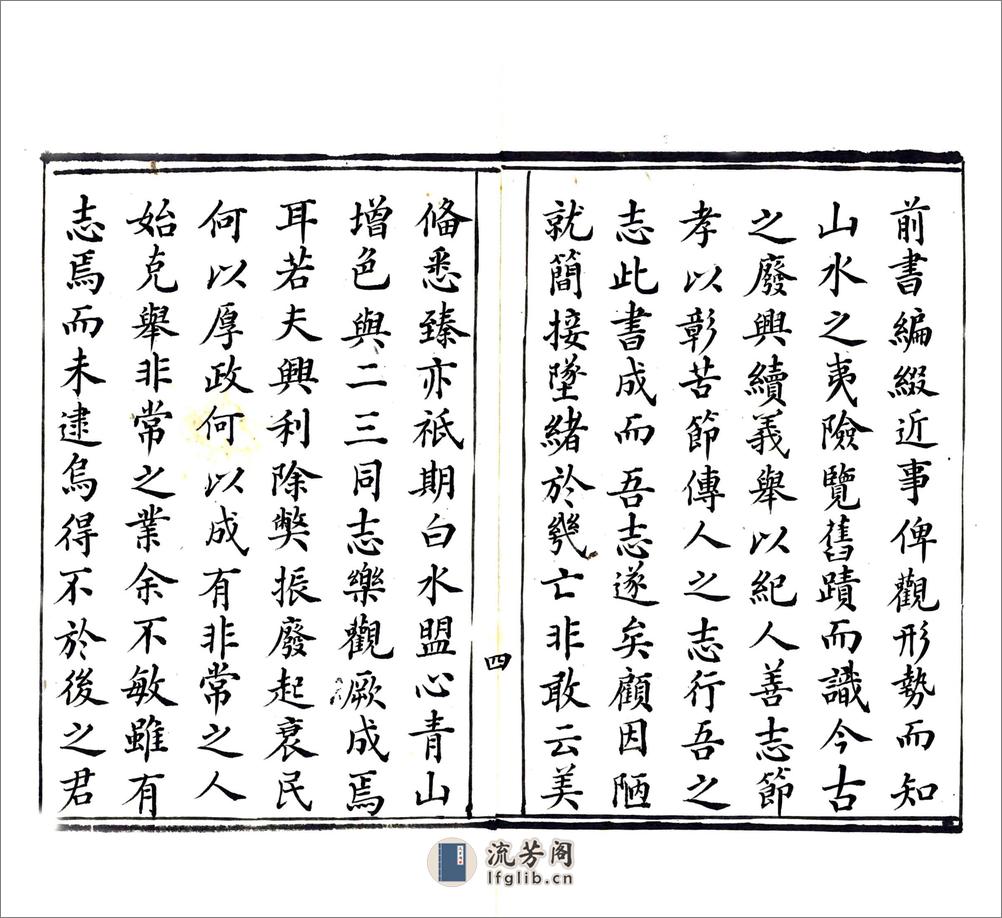 前書編綴近事俾觀形勢而知
山水之夷險覽舊蹟而識今古
之廢興續義舉以紀人善志節
孝以彰苦節傳人之志行吾之
志此書成而吾志遂矣顧因陋
就簡接墜緒於幾亡非敢云美
四
俻悉臻亦祇期白水盟心青山
增色與二三同志樂觀厥成焉
耳若夫興利除獘振廢起衰民
何以厚政何以成有非常之人
始克舉非常之業余不敏雖有
志焉而未逮烏得不於後之君
流芳阁
lfglib.cn